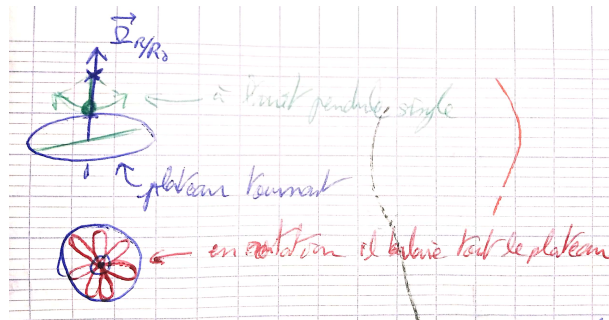 Ω R/R₀
← à l'arrêt pendule simple
plateau tournant
← en rotation il balaie tout le plateau